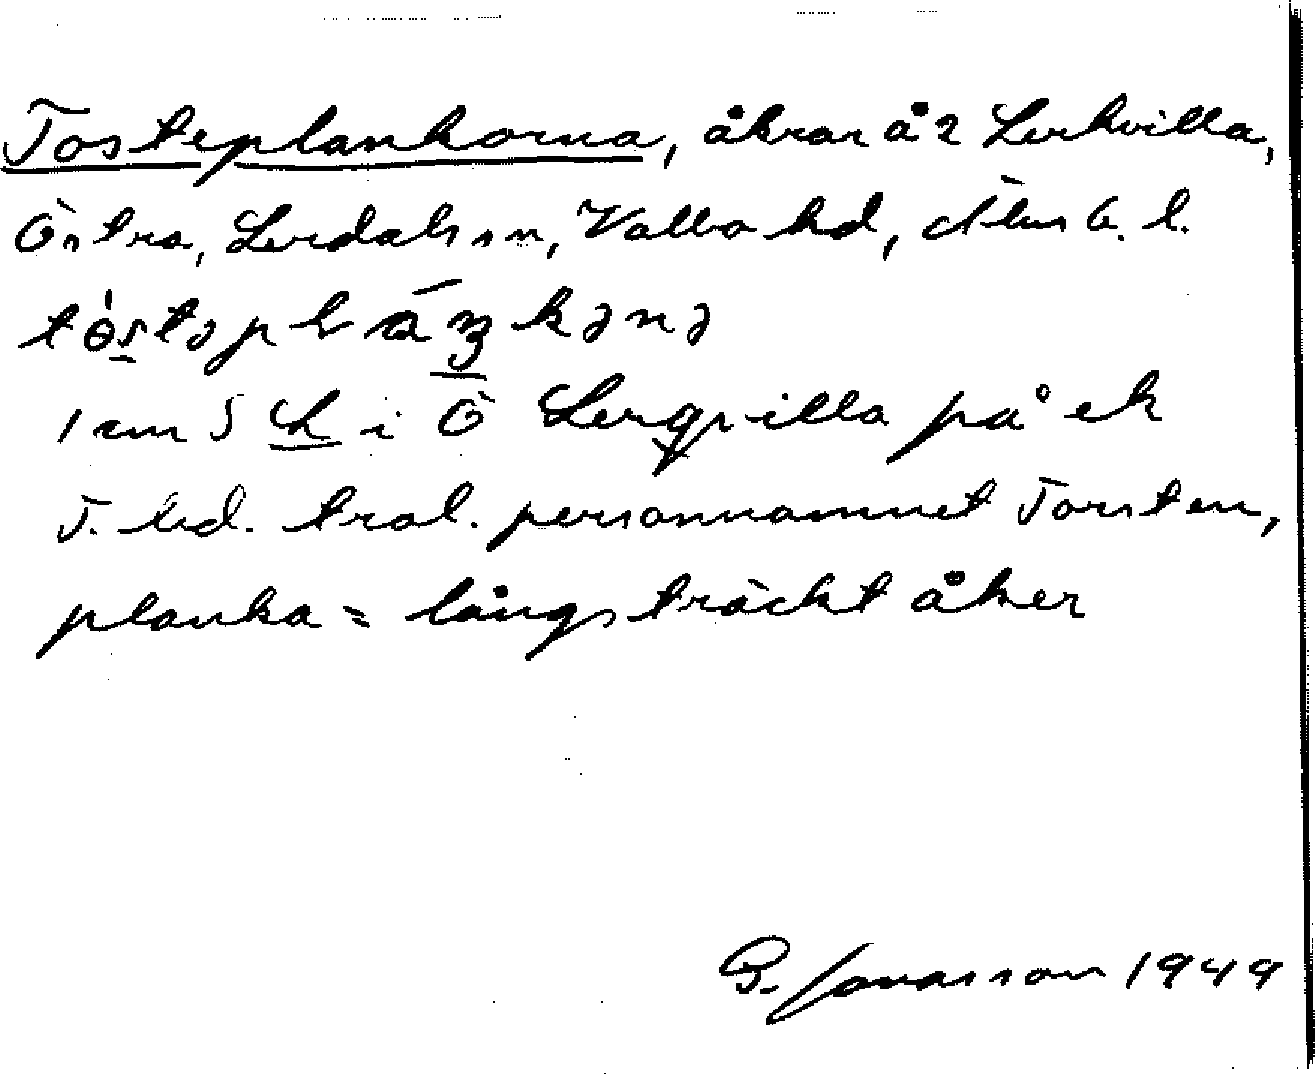 Tosteplankorna, åkrar å 2 Lerkvilla,
Östra, Lerdals sn, Valbo hd, Älvsb. l.
1 cm S L i Ö Lergvilla på ek
T. bid. trol. personnamnet Torsten,
planka = långsträckt åker
G. Jonasson 1949